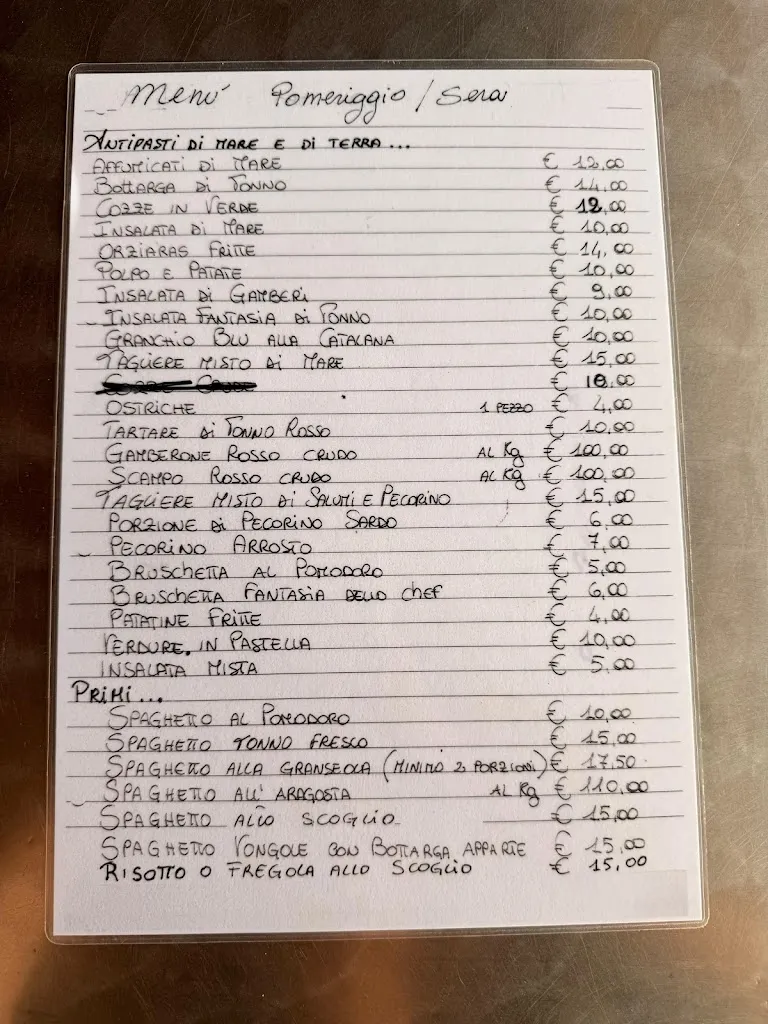 Menù Pomeriggio / Sera
ANTIPASTI DI MARE E DI TERRA...
AFFUMICATI DI MARE € 12,00
BOTTARGA DI TONNO € 14,00
COZZE IN VERDE € 12,00
INSALATA DI MARE € 10,00
ORZIARAS FRITTE € 14,00
POLPO E PATATE € 10,00
INSALATA DI GAMBERI € 9,00
INSALATA FANTASIA DI TONNO € 10,00
GRANCHIO BLU ALLA CATALANA € 10,00
TAGLIERE MISTO DI MARE € 15,00
€ 10,00
OSTRICHE 1 PEZZO € 4,00
TARTARE DI TONNO ROSSO € 10,00
GAMBERONE ROSSO CRUDO AL Kg € 100,00
SCAMPO ROSSO CRUDO AL Kg € 100,00
TAGLIERE MISTO DI SALUMI E PECORINO € 15,00
PORZIONE DI PECORINO SARDO € 6,00
PECORINO ARROSTO € 7,00
BRUSCHETTA AL POMODORO € 5,00
BRUSCHETTA FANTASIA DELLO CHEF € 6,00
PATATINE FRITTE € 4,00
VERDURE IN PASTELLA € 10,00
INSALATA MISTA € 5,00
PRIMI...
SPAGHETTO AL POMODORO € 10,00
SPAGHETTO TONNO FRESCO € 15,00
SPAGHETTO ALLA GRANSEOLA (MINIMO 2 PORZIONI) € 17,50
SPAGHETTO ALL' ARAGOSTA AL Kg € 110,00
SPAGHETTO ALLO SCOGLIO € 15,00
SPAGHETTO VONGOLE CON BOTTARGA APPARTE € 15,00
RISOTTO O FREGOLA ALLO SCOGLIO € 15,00